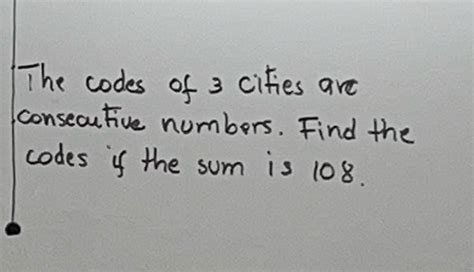 The codes of 3 cities are
consecutive numbers. Find the
codes if the sum is 108.